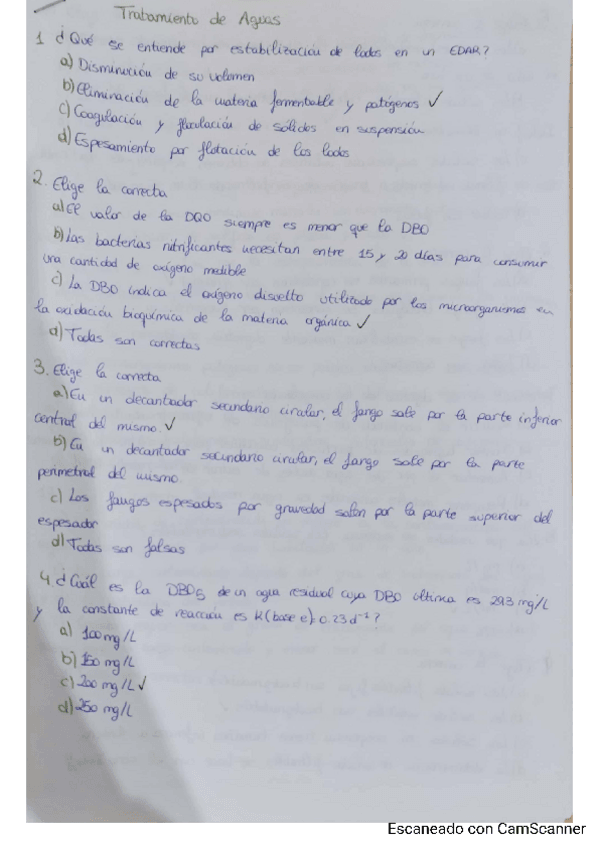 Tratamiento de Aguas
1 ¿Qué se entiende por estabilización de lodos en un EDAR?
a) Disminución de su volumen
b) Eliminación de la materia fermentable y patógenos ✓
c) Coagulación y floculación de sólidos en suspensión
d) Espesamiento por flotación de los lodos
2. Elige la correcta
a) El valor de la DQO siempre es menor que la DBO
b) Las bacterias nitrificantes necesitan entre 15 y 20 días para consumir
una cantidad de oxígeno medible
c) La DBO indica el oxígeno disuelto utilizado por los microorganismos en
la oxidación bioquímica de la materia orgánica ✓
d) Todas son correctas
3. Elige la correcta
a) En un decantador secundario circular, el fango sale por la parte inferior
central del mismo. ✓
b) En un decantador secundario circular, el fango sale por la parte
perimetral del mismo.
c) Los fangos espesados por gravedad salen por la parte superior del
espesador
d) Todas son falsas
4. ¿Cuál es la DBO5 de un agua residual cuya DBO última es 293 mg/L
y la constante de reacción es K (base e): 0.23 d⁻¹?
a) 100 mg/L
b) 150 mg/L
c) 200 mg/L ✓
d) 250 mg/L
Escaneado con CamScanner